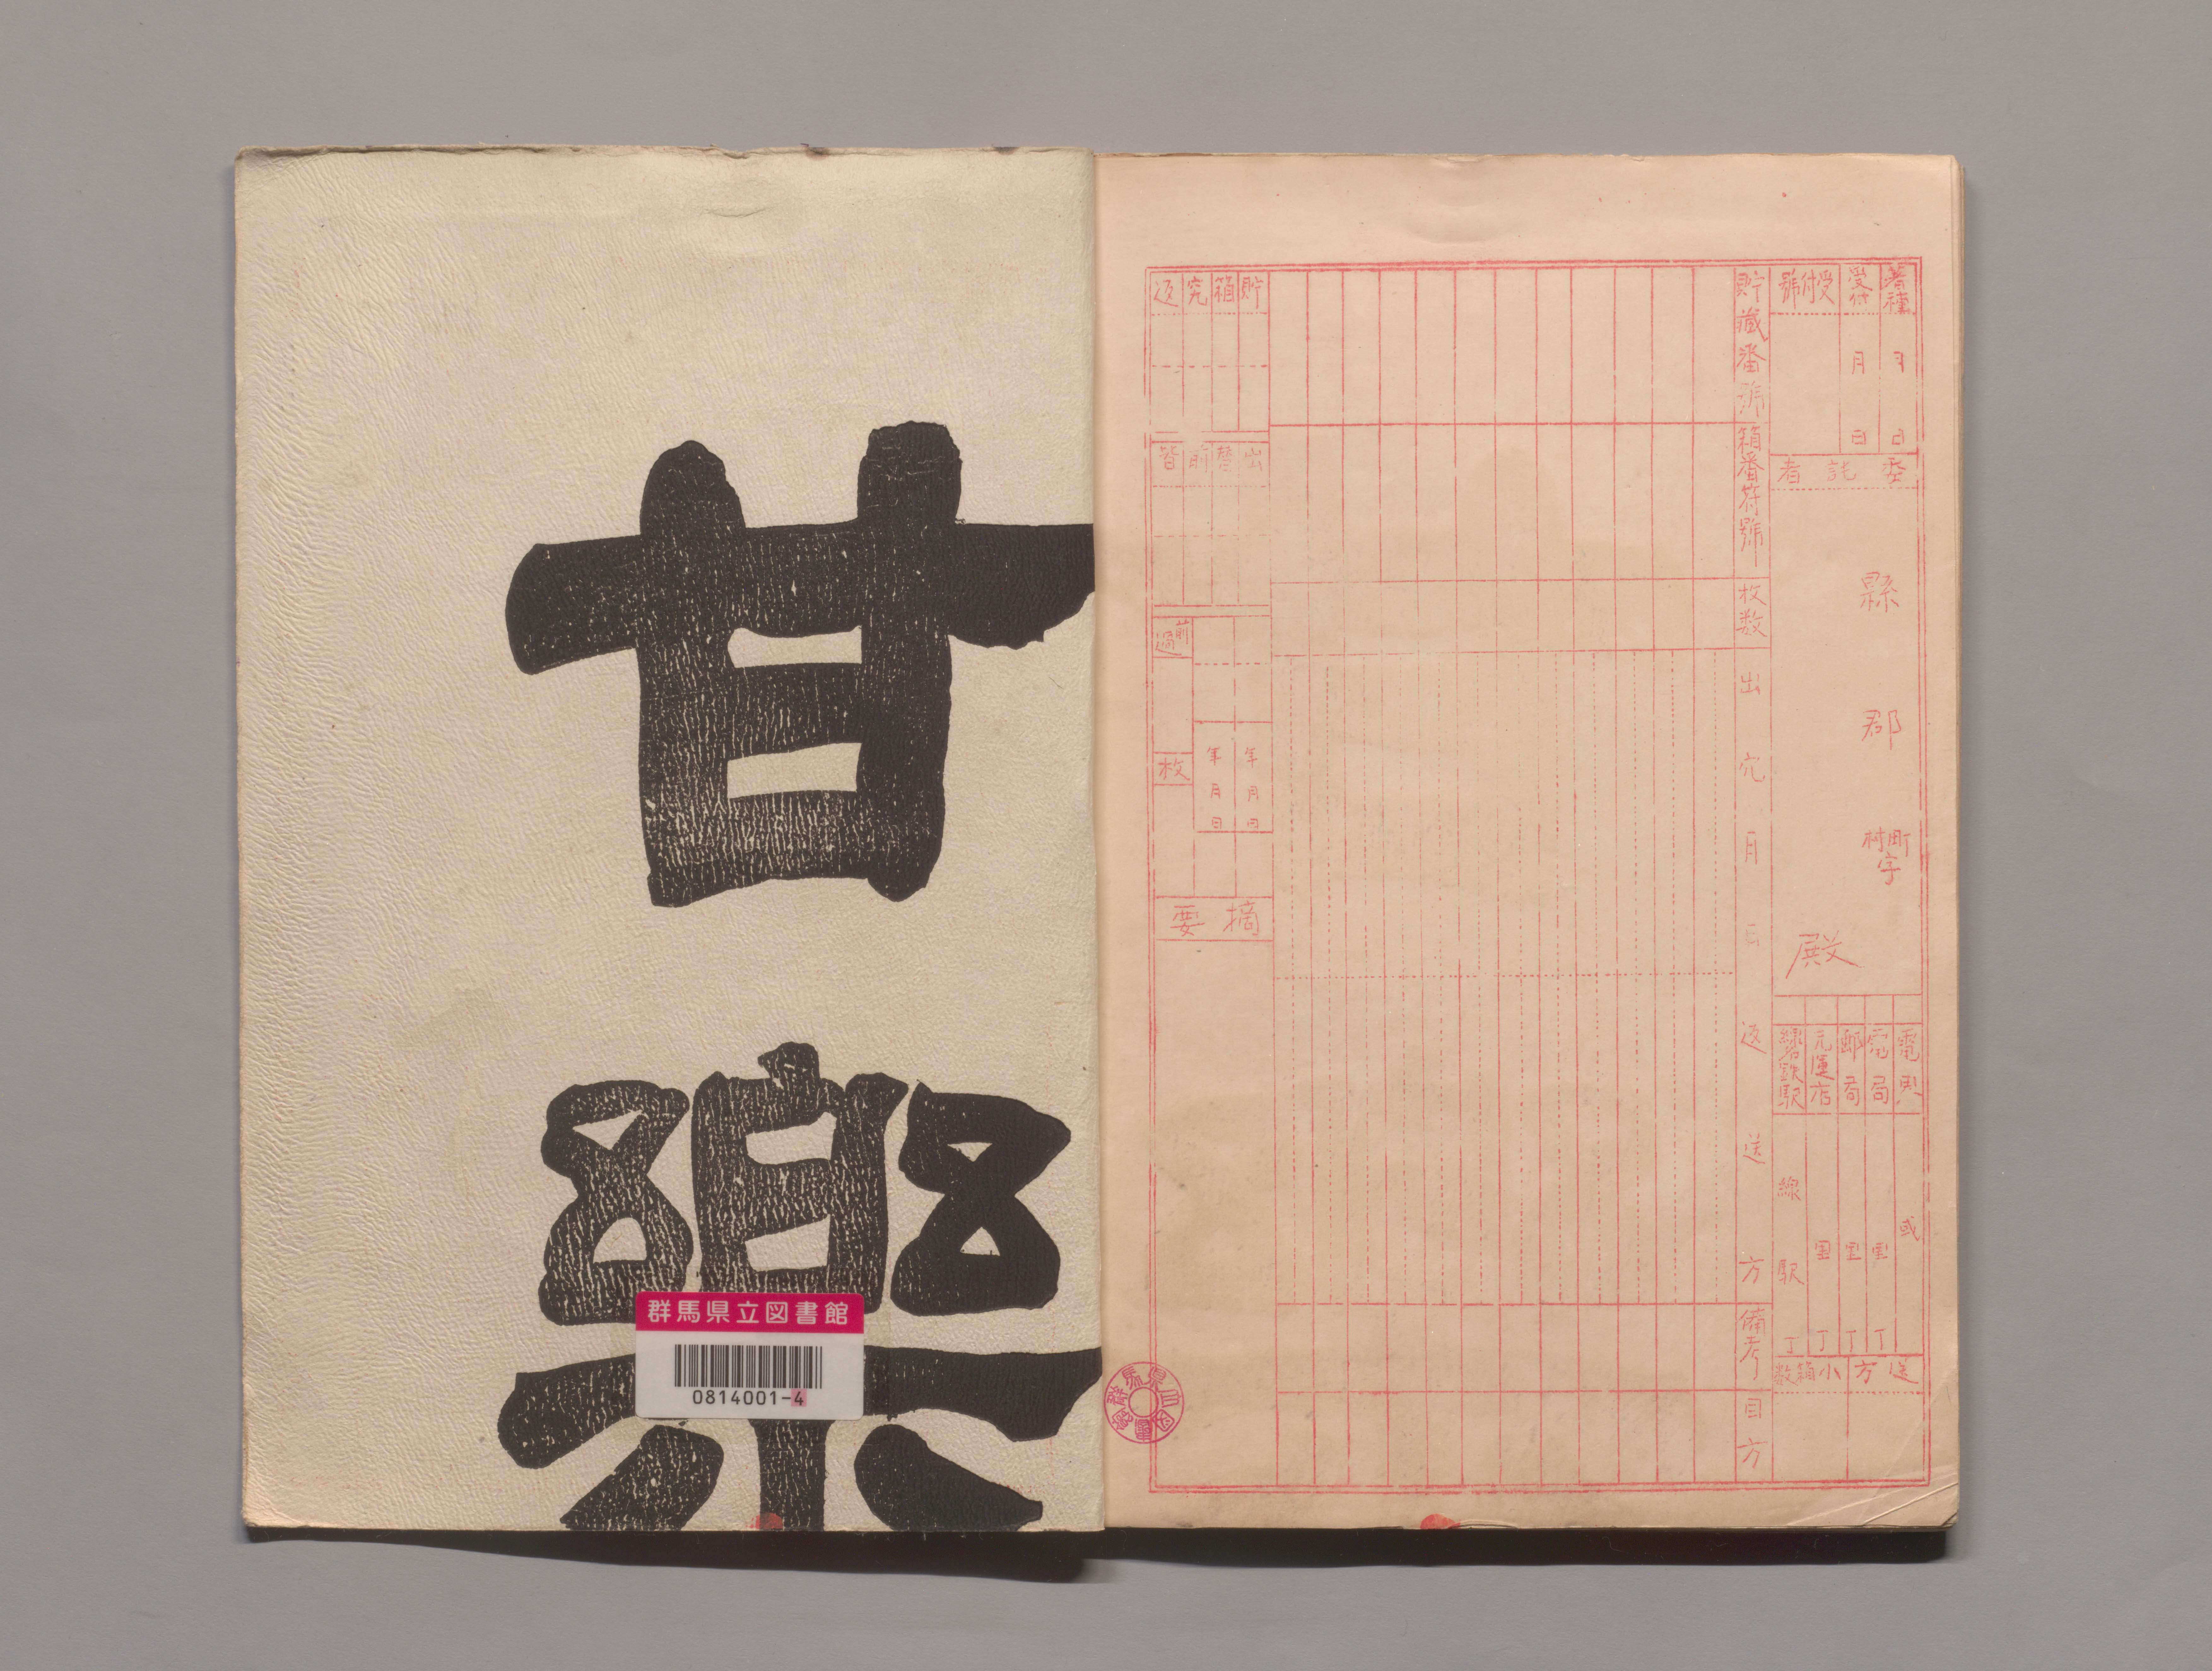 甘樂
群馬県立図書館
0814001-4
着種
月
日
受付
月
日
受付
號
委託者
縣
郡
町村
字
殿
電略
電局
郵局
元運店
或
里
里
里
丁
丁
丁
丁
線
駅
送方
小箱数
貯藏番號
箱番符號
枚数
出穴月日返送方
備考
目方
貯
箱
穴
返
出
前
皆
前過
枚
年月日
年月日
摘要
群馬県立図書館